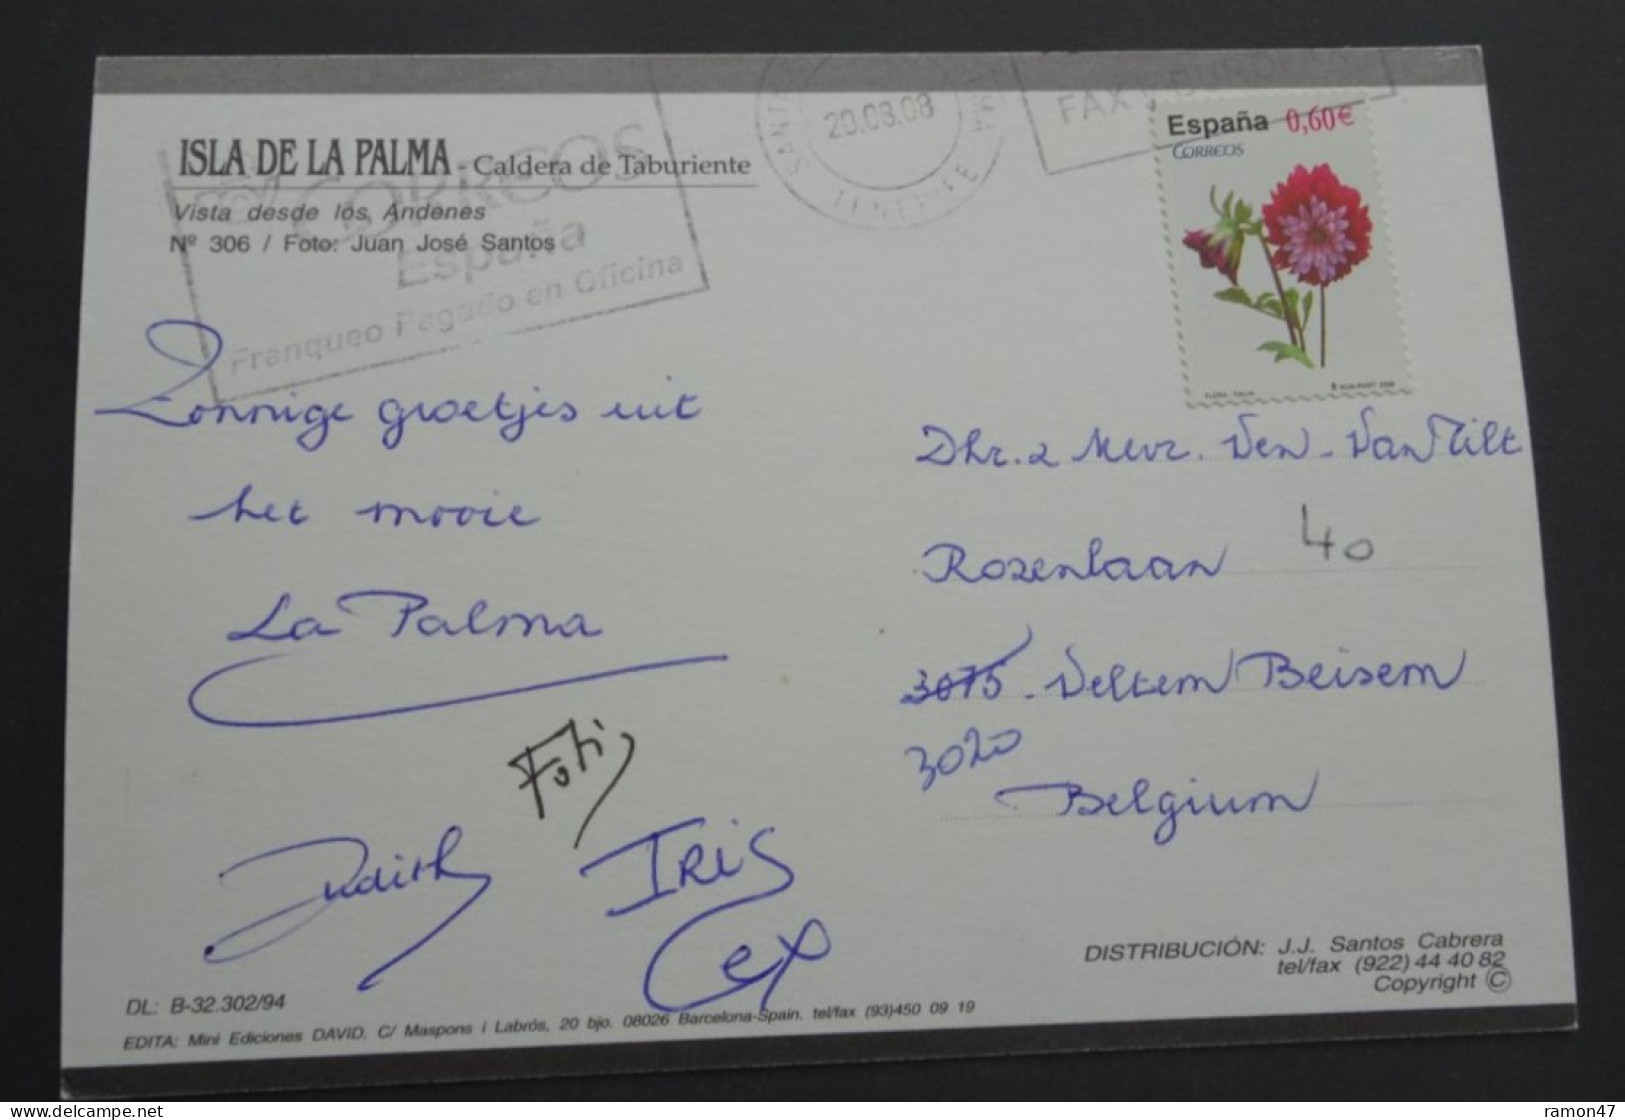 ISLA DE LA PALMA - Caldera de Taburiente
Vista desde los Andenes
Nº 306 / Foto: Juan José Santos
CORREOS
España
Franqueo Pagado en Oficina
20.03.08
TENERIFE
FAX
España 0,60€
CORREOS
Zonnige groetjes uit
het mooie
La Palma
Judith
Iris
Dhr. & Mevr. Ven - Van Tilt
Rozenlaan 40
3075 - Veltem Beisem
3020
Belgium
DISTRIBUCIÓN: J.J. Santos Cabrera
tel/fax (922) 44 40 82
Copyright ©
DL: B-32.302/94
EDITA: Mini Ediciones DAVID. C/ Maspons i Labrós, 20 bjo. 08026 Barcelona-Spain. tel/fax (93)450 09 19
delcampe.net
ramon47